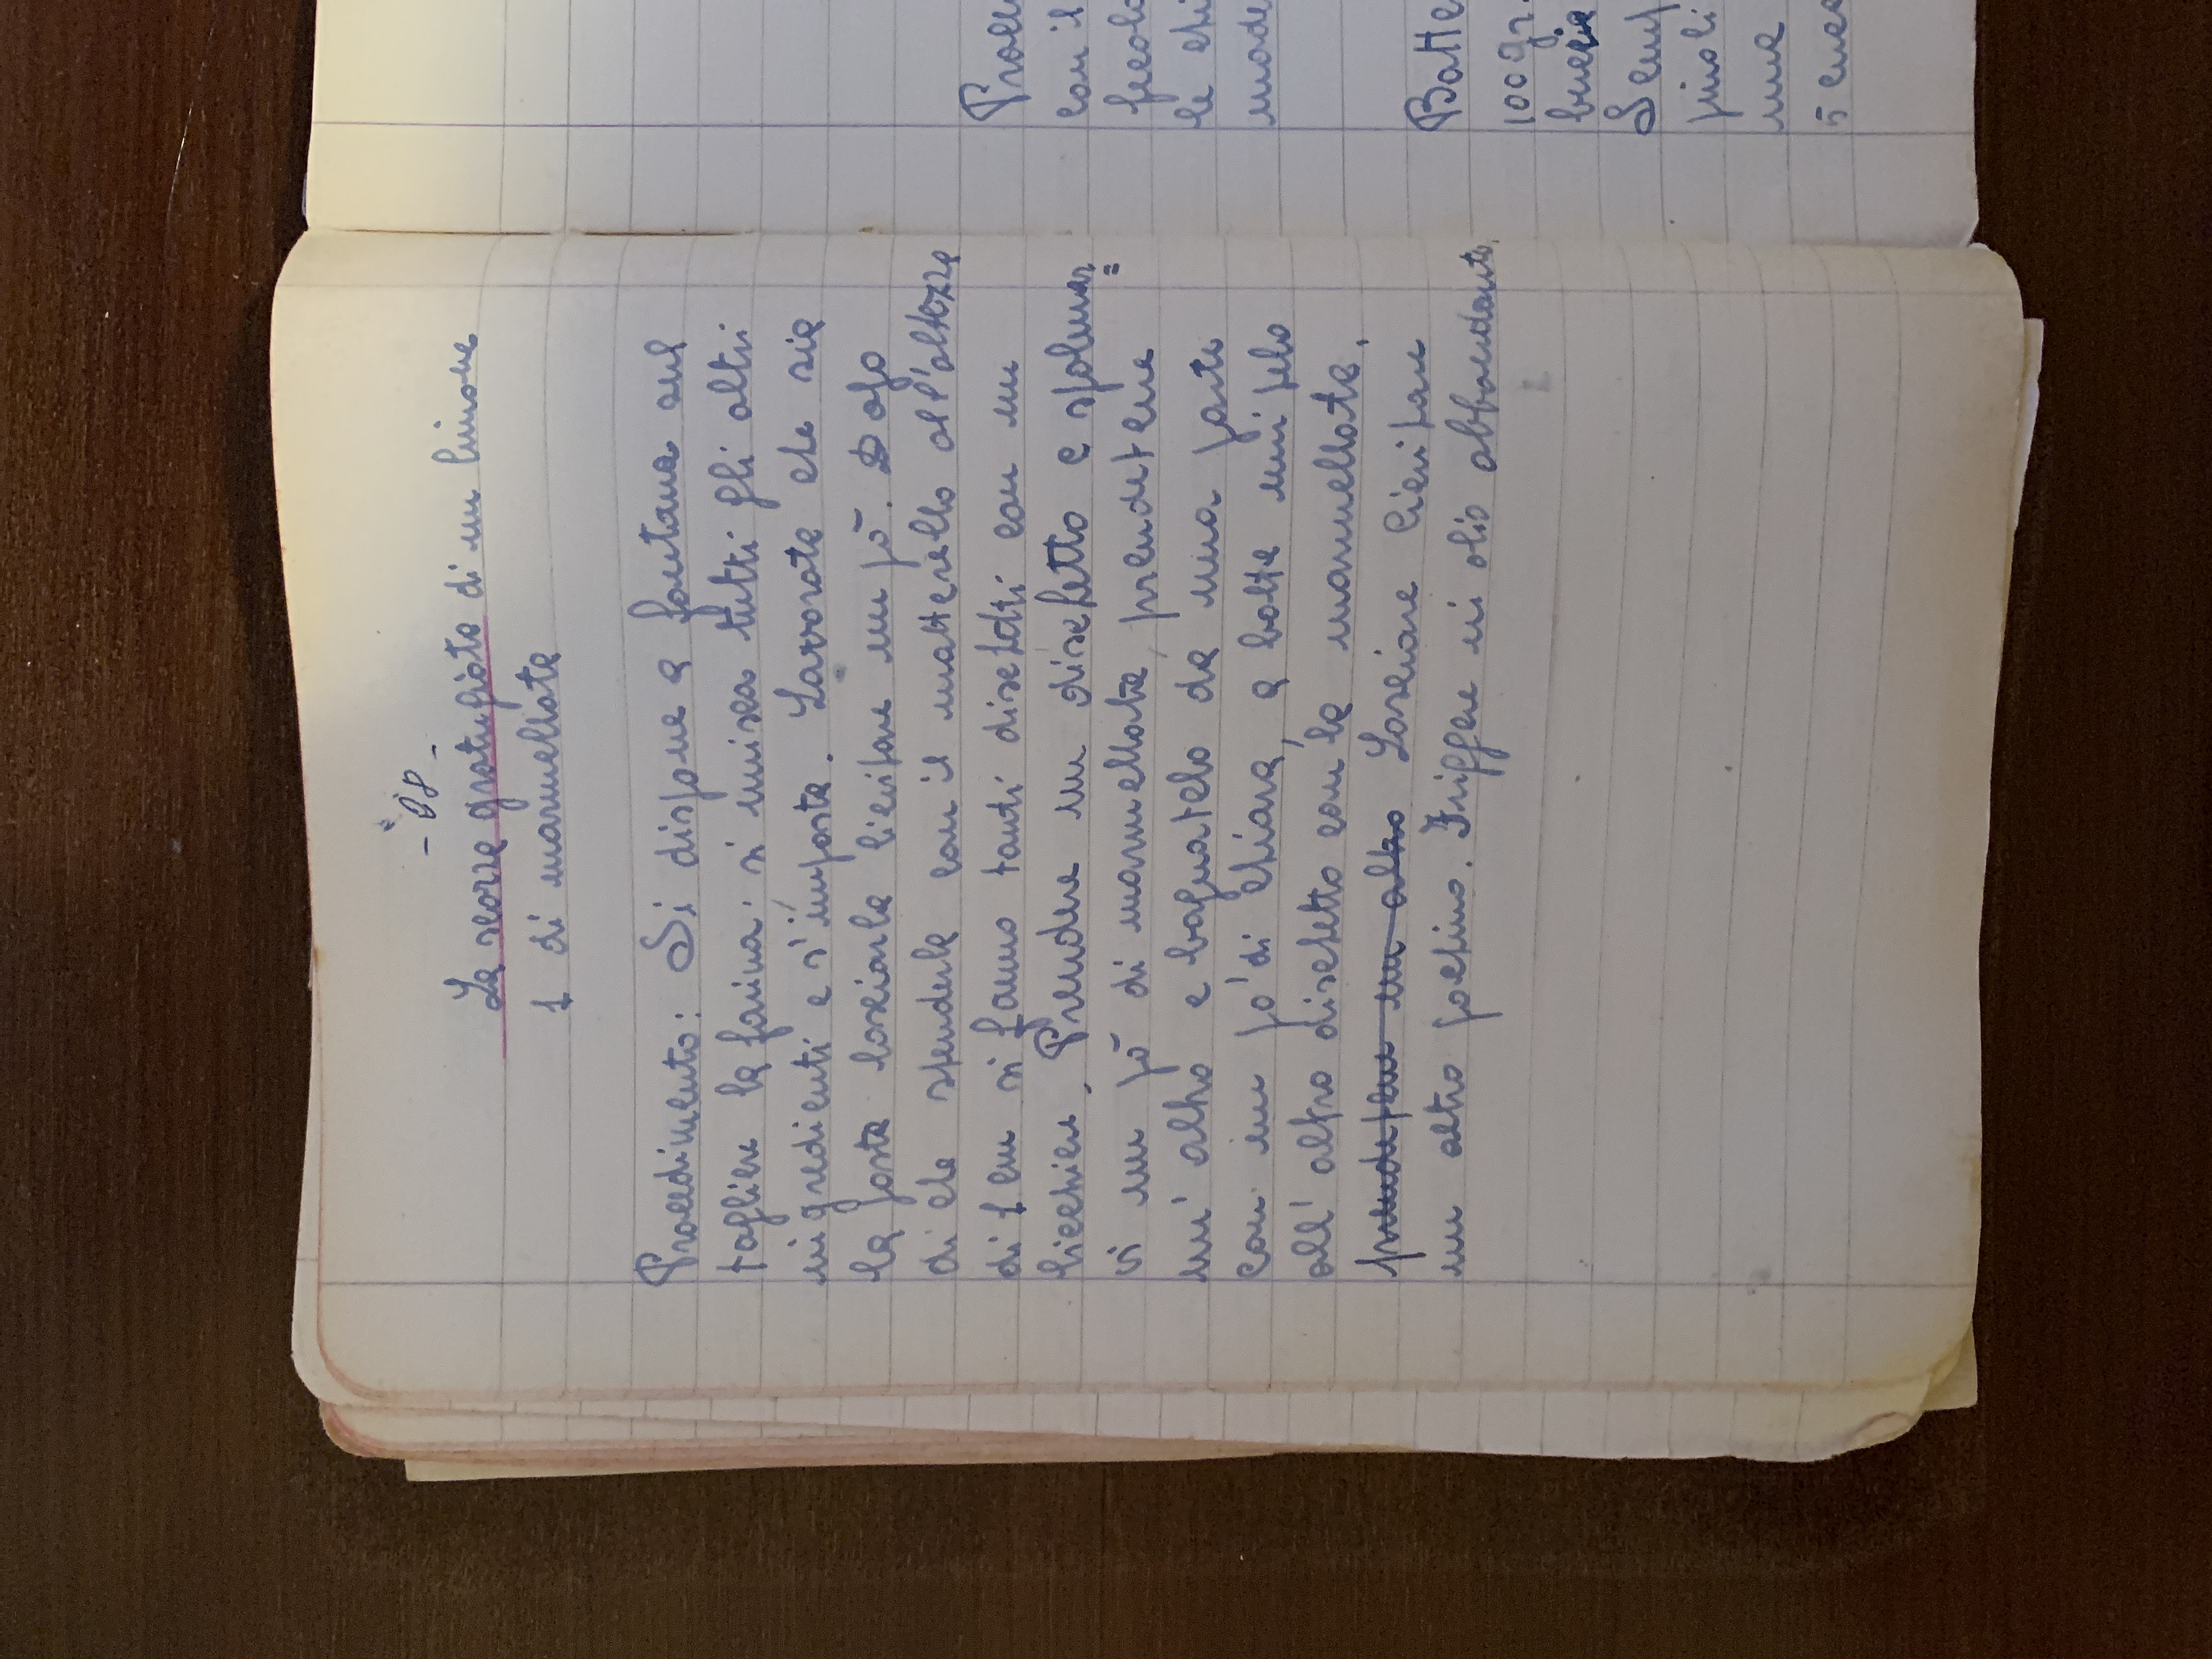 - 28 -
La scorza gratugiata di un limone
1 di marmellata
Procedimento: Si dispone a fontana sul
tagliere la farina; si unisca tutti gli altri
ingredienti e s'imposta. Lavorata che sia
la pasta lasciarla lievitare un pò. Dopo
di che stenderla con il matterello all'altezza
di 1 cm si fanno tanti dischetti con un
bicchiere. Prendere un dischetto e spalmar=
vi un pò di marmellata, prendetene
un' altro e bagnatelo da una parte
con un po' di chiara, a volta unitelo
all' altro dischetto con la marmellata.
prendetene un altro Lasciare lievitare
un altro pochino. Friggere in olio abbondante.
Proce
con il
fecola
le chi
made
Batte
100 gr.
buccia
Semp
pinoli
una
5 cucc